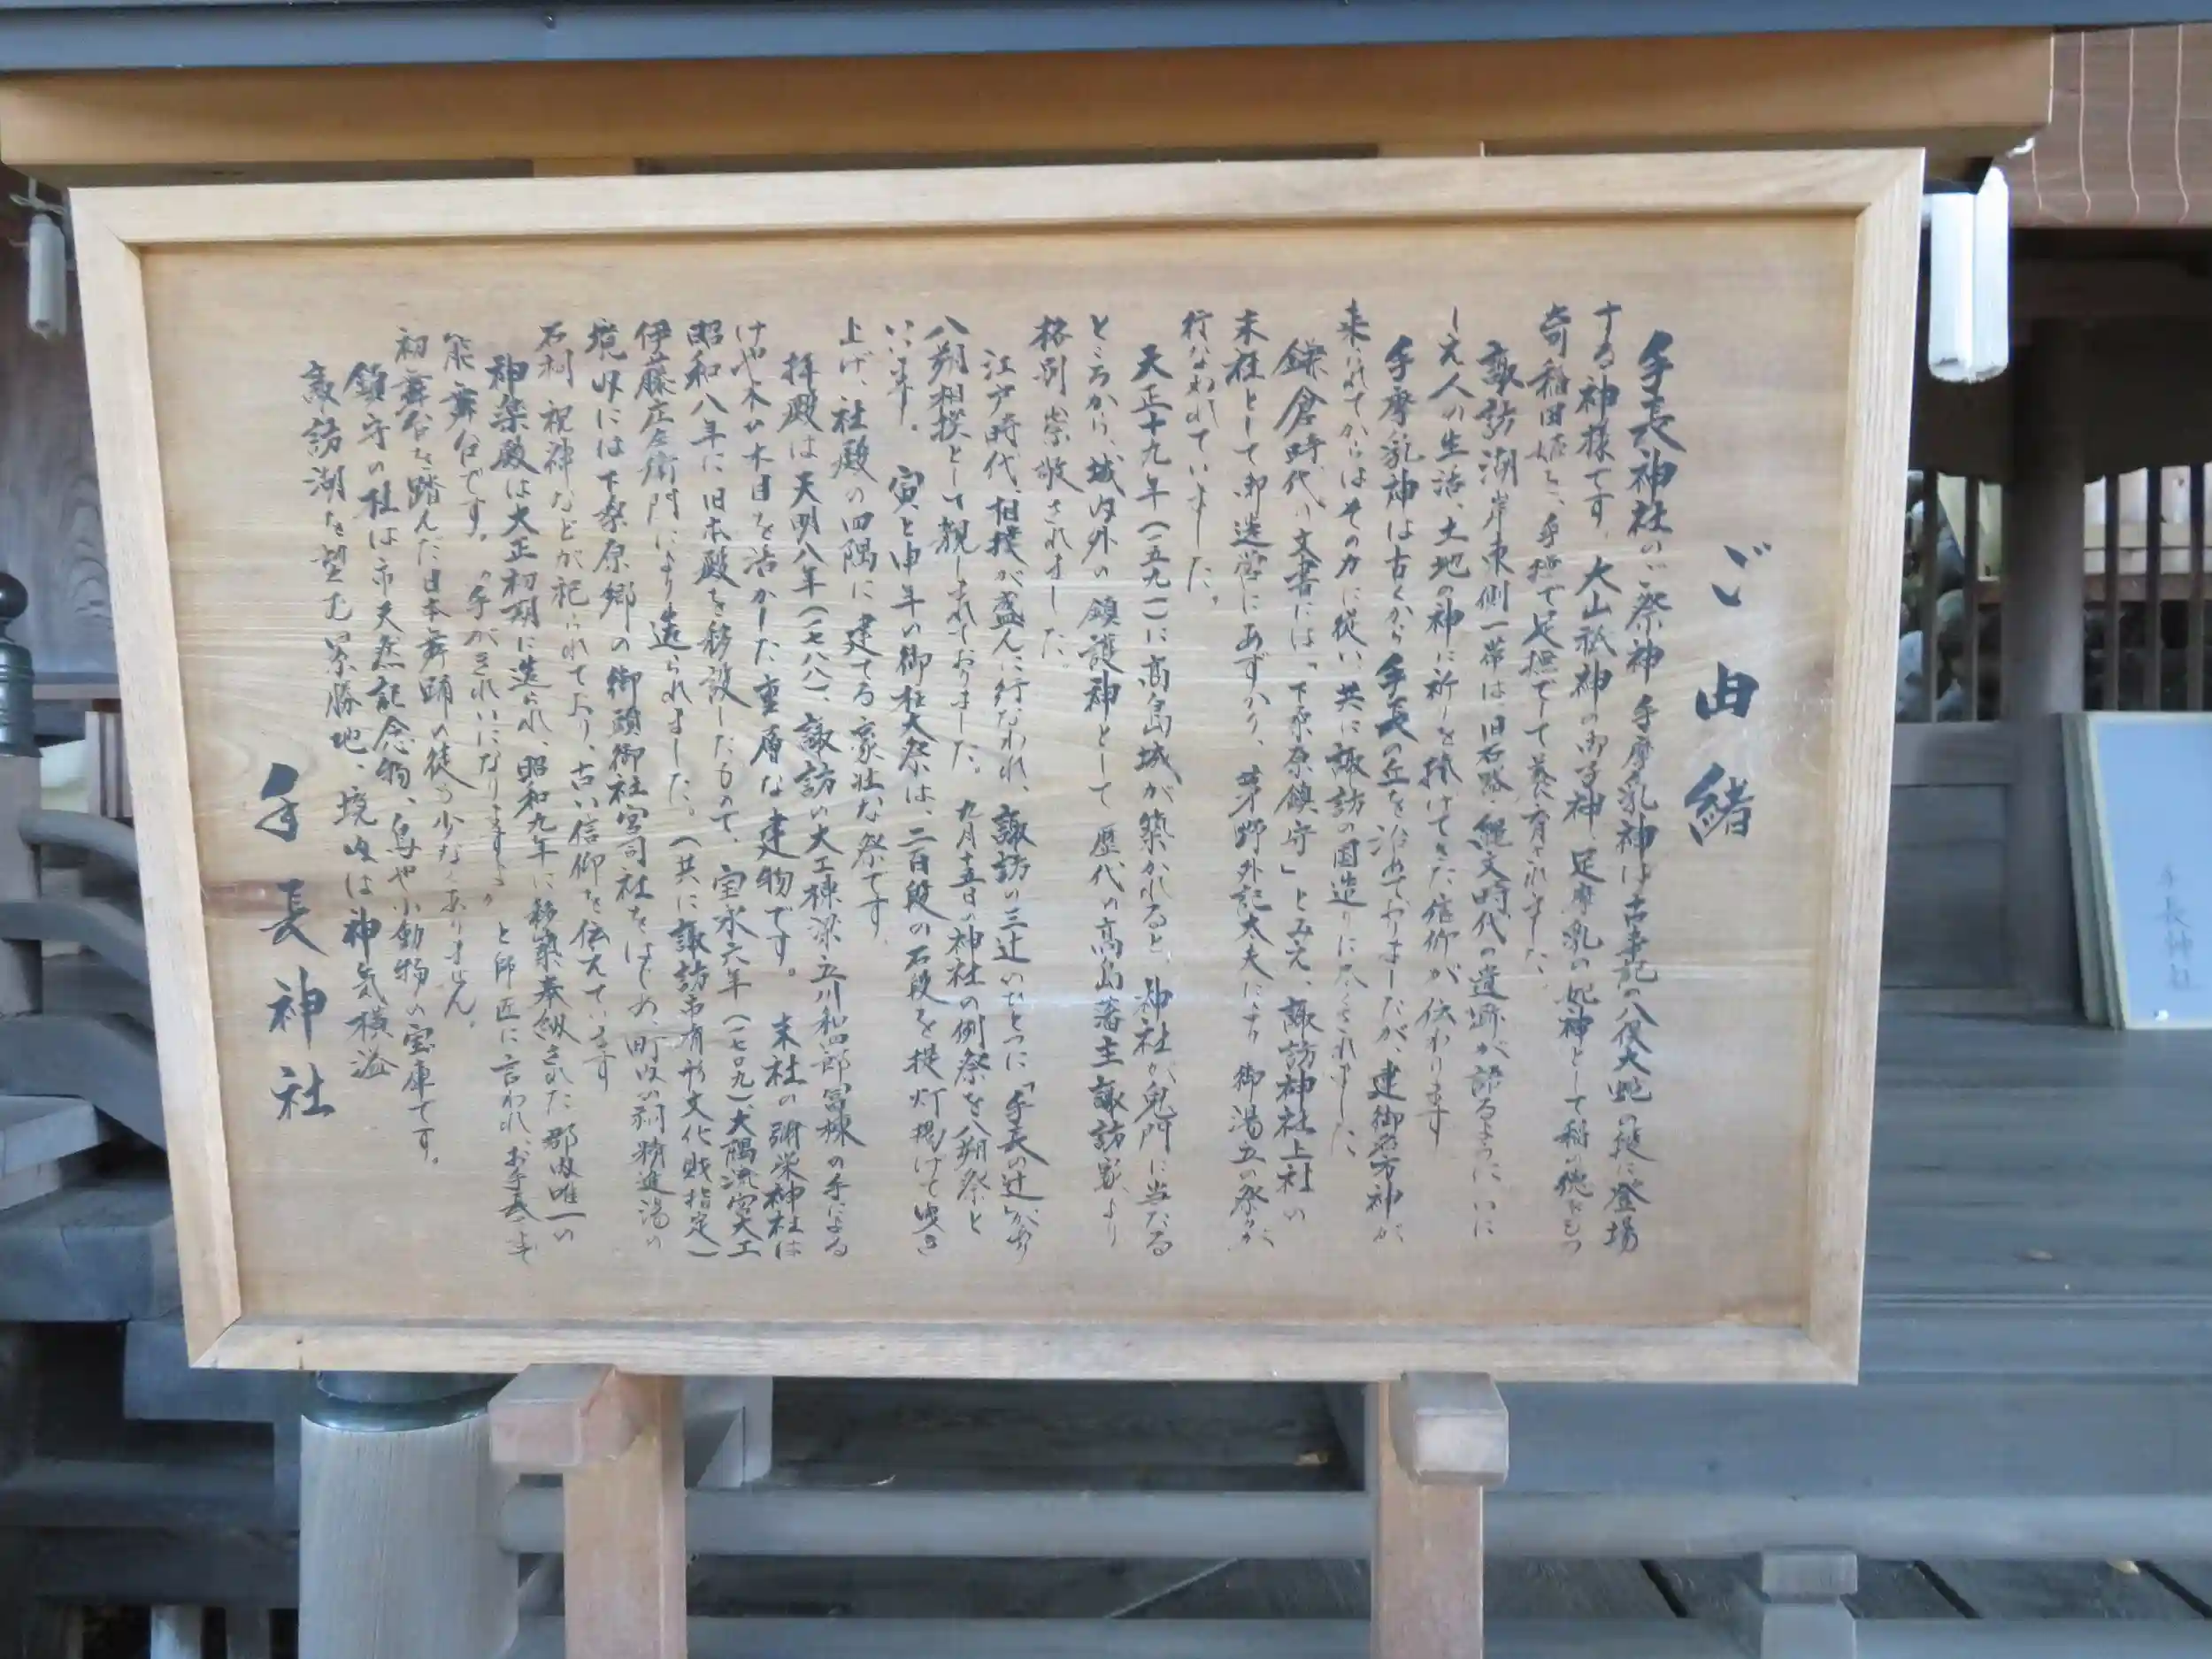 ご由緒
手長神社のご祭神 手摩乳神は古事記の八俣大蛇の段に登場
する神様です。大山祇神の御子神、足摩乳の妃神として稲の徳をもつ
奇稲田姫を、手撫で足撫でして養育されました。
諏訪湖岸東側一帯は、旧石器・縄文時代の遺跡が語るように、いに
しえ人の生活、土地の神に祈りを捧げてきた信仰が伝わります
手摩乳神は古くから手長の丘を治めておりましたが、建御名方神が
来られてからはその力に従い共に諏訪の国造りに尽くされました。
鎌倉時代の文書には「下桑原鎮守」とみえ、諏訪神社上社の
末社として御造営にあずかり、茅野外記太夫により御湯立の祭が
行なわれていました。
天正十九年(一五九一)に高島城が築かれると、神社が鬼門に当たる
ところから、城内外の鎮護神として歴代の高島藩主諏訪家より
格別崇敬されました。
江戸時代、相撲が盛んに行なわれ、諏訪の三辻のひとつに「手長の辻」があり
八朔相撲として親しまれておりました。九月十五日の神社の例祭を八朔祭と
いいます。寅と申年の御柱大祭は、二百段の石段を提灯掲げて曳き
上げ、社殿の四隅に建てる豪壮な祭です。
拝殿は天明八年(一七八八)、諏訪の大工棟梁立川和四郎冨棟の手による
けやきの木目を活かした重層な建物です。末社の弥栄神社は
昭和八年に旧本殿を移設したもので、宝永六年(一七〇九)、大隅流宮大工
伊藤庄左衛門により造られました。(共に諏訪市有形文化財指定)
境内には下桑原郷の御頭御社宮司社をはじめ、町内の祠 精進湯の
石利 祝神などが祀られており、古い信仰を伝えています
神楽殿は大正初期に造られ、昭和九年に移築奉納された郡内唯一の
能舞台です。"手がきれいになりますよ"と師匠に言われ、お手長さまで
初舞台を踏んだ日本舞踊の徒も少なくありません。
鎮守の杜は市天然記念物、鳥や小動物の宝庫です。
諏訪湖を望む景勝地、境内は神気横溢
手長神社
手長神社